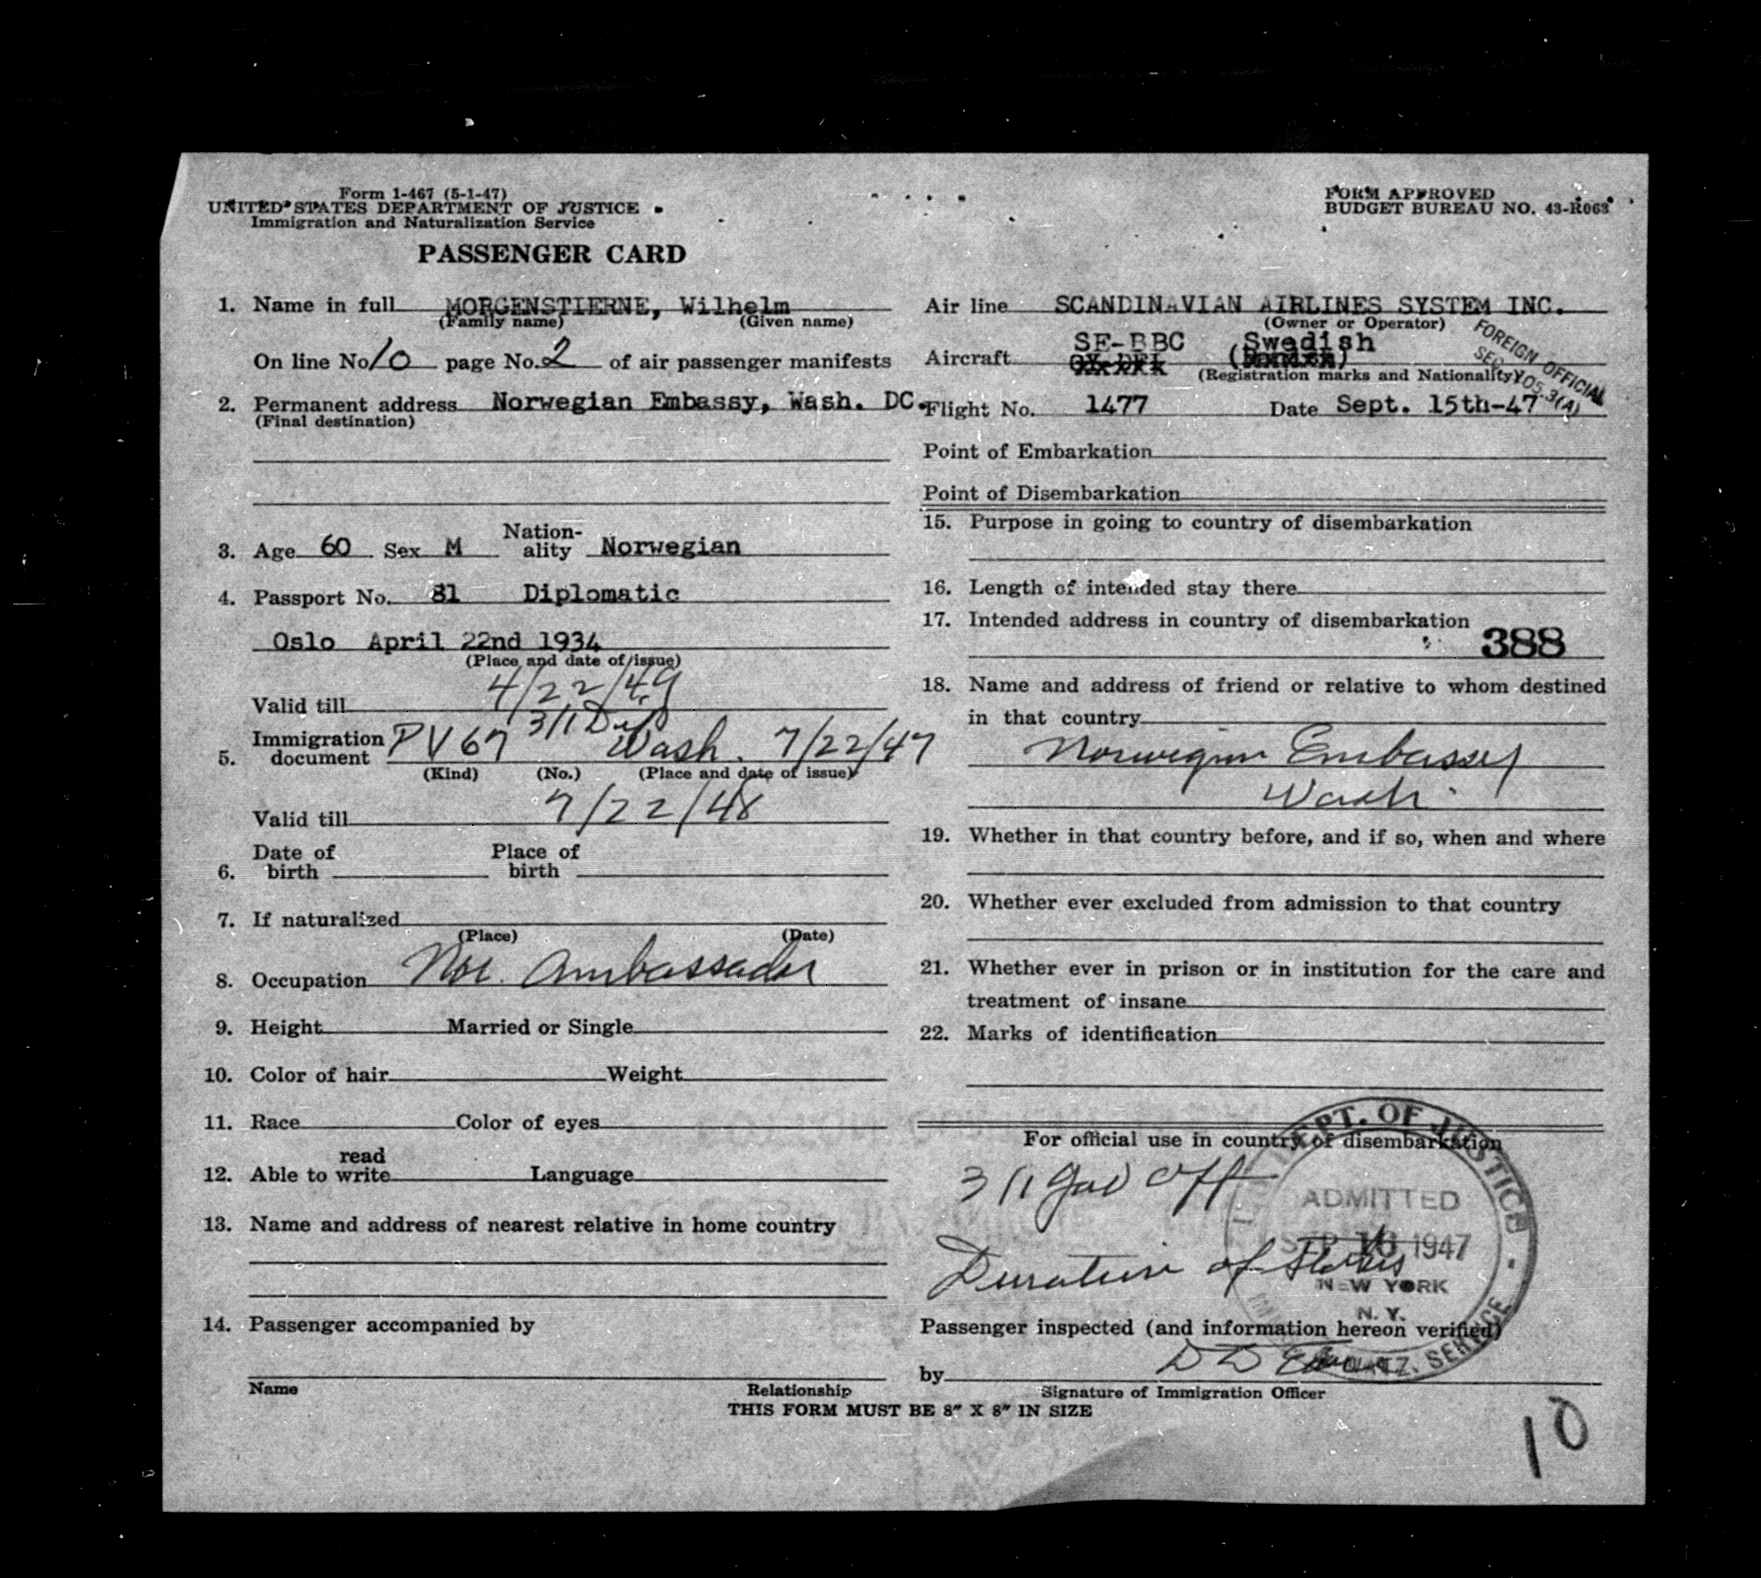 Form 1-467 (5-1-47)
UNITED STATES DEPARTMENT OF JUSTICE
Immigration and Naturalization Service
PASSENGER CARD
FORM APPROVED
BUDGET BUREAU NO. 43-R063
1. Name in full MORGENSTIERNE, Wilhelm
(Family name) (Given name)
On line No. 10 page No. 2 of air passenger manifests
2. Permanent address Norwegian Embassy, Wash. DC.
(Final destination)
3. Age 60 Sex M Nation-
ality Norwegian
4. Passport No. 81 Diplomatic
Oslo April 22nd 1934
(Place and date of issue)
Valid till 4/22/49
3/1 Dip
5. Immigration
document PV 67 Wash. 7/22/47
(Kind) (No.) (Place and date of issue)
Valid till 7/22/48
6. Date of
birth Place of
birth
7. If naturalized
(Place) (Date)
8. Occupation Nor. Ambassador
9. Height Married or Single
10. Color of hair Weight
11. Race Color of eyes
12. Able to read
write Language
13. Name and address of nearest relative in home country
14. Passenger accompanied by
Name Relationship
Air line SCANDINAVIAN AIRLINES SYSTEM INC.
(Owner or Operator)
SE-BBC Swedish
Aircraft (Danish)
(Registration marks and Nationality)
FOREIGN OFFICIAL
SEC. 3(A)
Flight No. 1477 Date Sept. 15th-47
Point of Embarkation
Point of Disembarkation
15. Purpose in going to country of disembarkation
16. Length of intended stay there
17. Intended address in country of disembarkation
388
18. Name and address of friend or relative to whom destined
in that country
Norwegian Embassy
Wash.
19. Whether in that country before, and if so, when and where
20. Whether ever excluded from admission to that country
21. Whether ever in prison or in institution for the care and
treatment of insane
22. Marks of identification
For official use in country of disembarkation
3/1 Gov Off
Duration of Status
DEPT. OF JUSTICE
ADMITTED
SEP 16 1947
NEW YORK
N. Y.
SERVICE
Passenger inspected (and information hereon verified)
by
Signature of Immigration Officer
THIS FORM MUST BE 8" X 8" IN SIZE
10